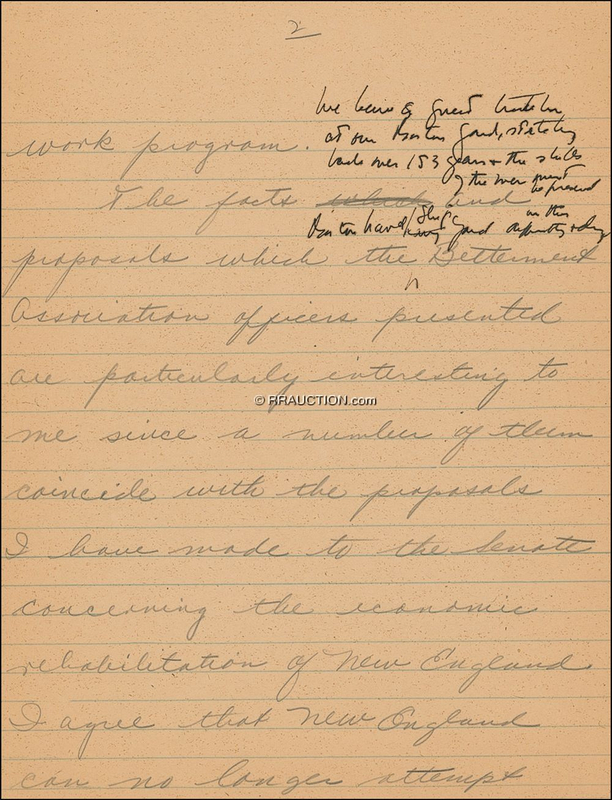 2
We have a great tradition
at our Boston Yard, stretching
back over 153 years & the skills
of the men must
be present
work program.
The facts which and
on this
Boston Naval Ship yard
proposals which the Betterment
Association officers presented
are particularly interesting to
© RRAUCTION.com
me since a number of them
coincide with the proposals
I have made to the Senate
concerning the economic
rehabilitation of New England.
I agree that New England
can no longer attempt